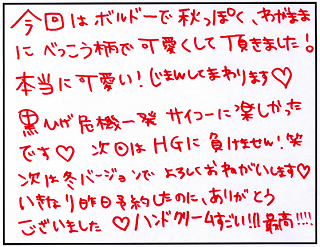 今回はボルドーで秋っぽく、わがまま
に べっこう柄で可愛くして頂きました!
本当に可愛い!じまんしてまわります♡
黒ひげ危機一発 サイコーに楽しかった
です♡ 次回はHGに負けません!笑
次は冬バージョンで よろしくおねがいします♡
いきなり昨日予約したのに、ありがとう
ございました ♡ハンドクリームすごい!!最高!!!!